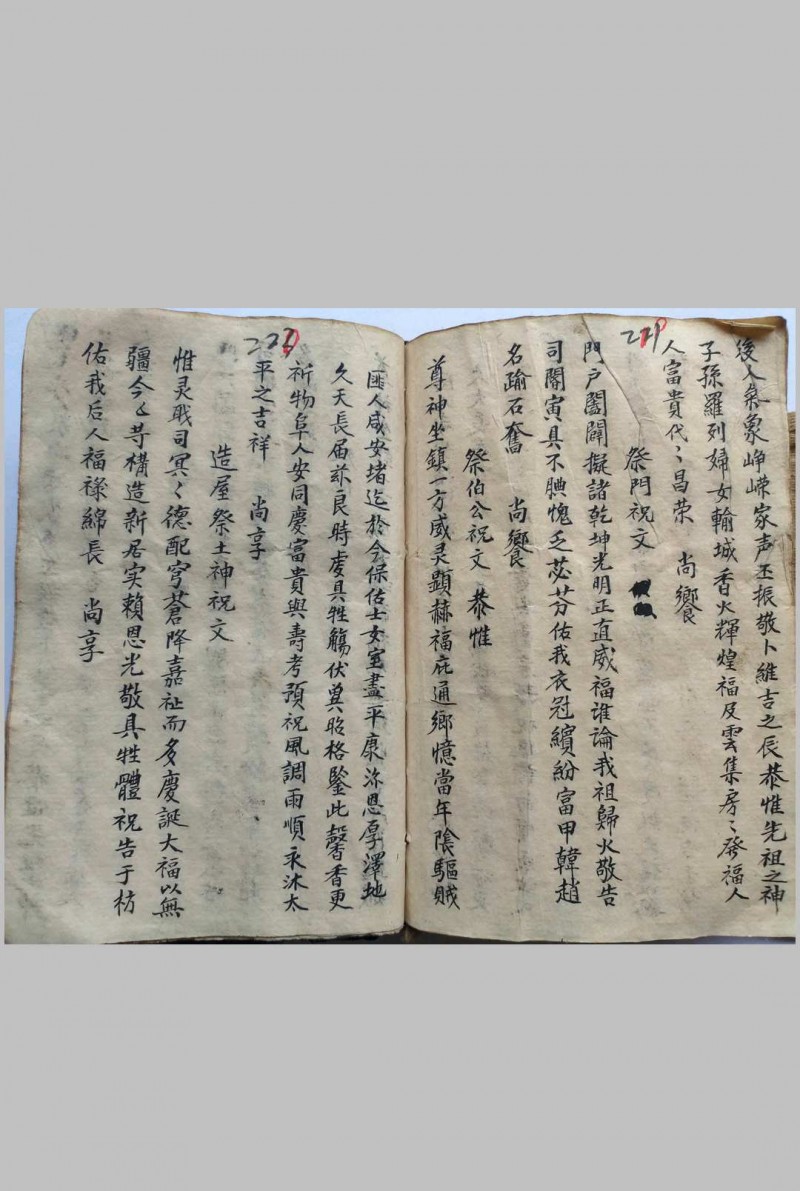 229
後人氣象崢嶸家声丕振敬卜維吉之辰恭惟先祖之神
子孫羅列婦女輸城香火輝煌福及雲集房〻發福人
人富貴代〻昌荣 尚饗
祭門祝文
門戸闔闢擬諸乾坤光明正直威福誰論我祖歸火敬告
司閽寅具不腆愧乏苾芬佑我衣冠繽紛富甲韓趙
名踰石奮 尚饗
祭伯公祝文 恭惟
尊神坐鎮一方威灵顕赫福庇通鄉憶當年陰驅賊
匪人咸安堵迄於今保佑士女室盡平康沵恩厚澤地
久天長届兹良時虔具牲觴伏兾昭格鑒此馨香更
祈物阜人安同慶富貴與壽考預祝風調雨順永沐太
平之吉祥 尚享
造屋祭土神祝文
惟灵戝司冥〻德配穹蒼降嘉祉而多慶誕大福以無
疆今 構造新居实賴恩光敬具牲醴祝告于枋
佑我后人福祿綿長 尚享